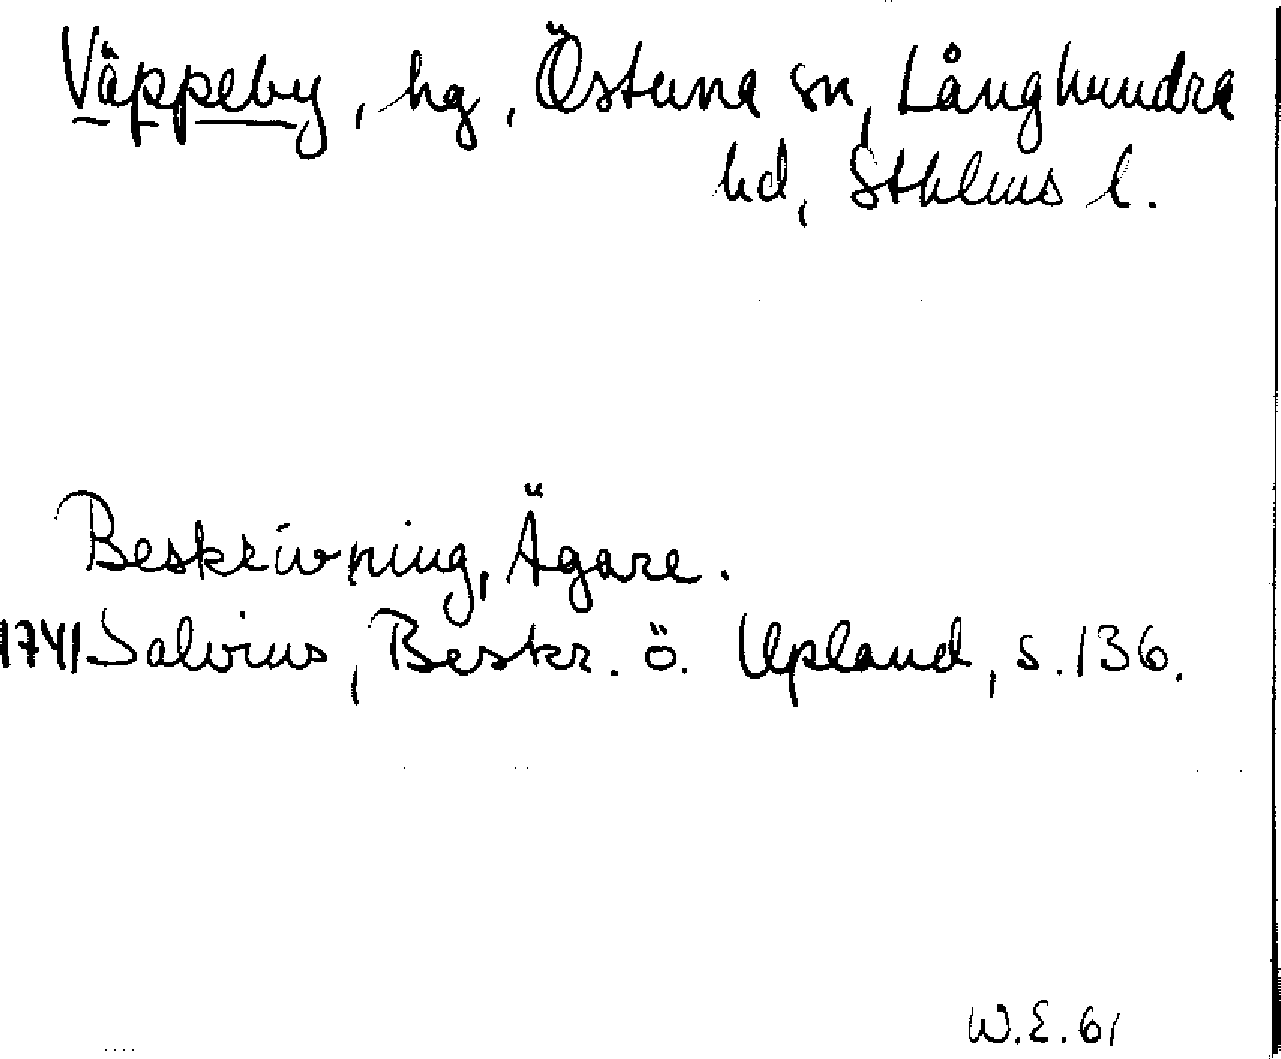 Väppeby, hg, Östuna sn, Långhundra
hd, Sthlms l.
Beskrivning, Ägare.
1741 Salvius, Beskr. ö. Upland, s. 136.
W.E. 61